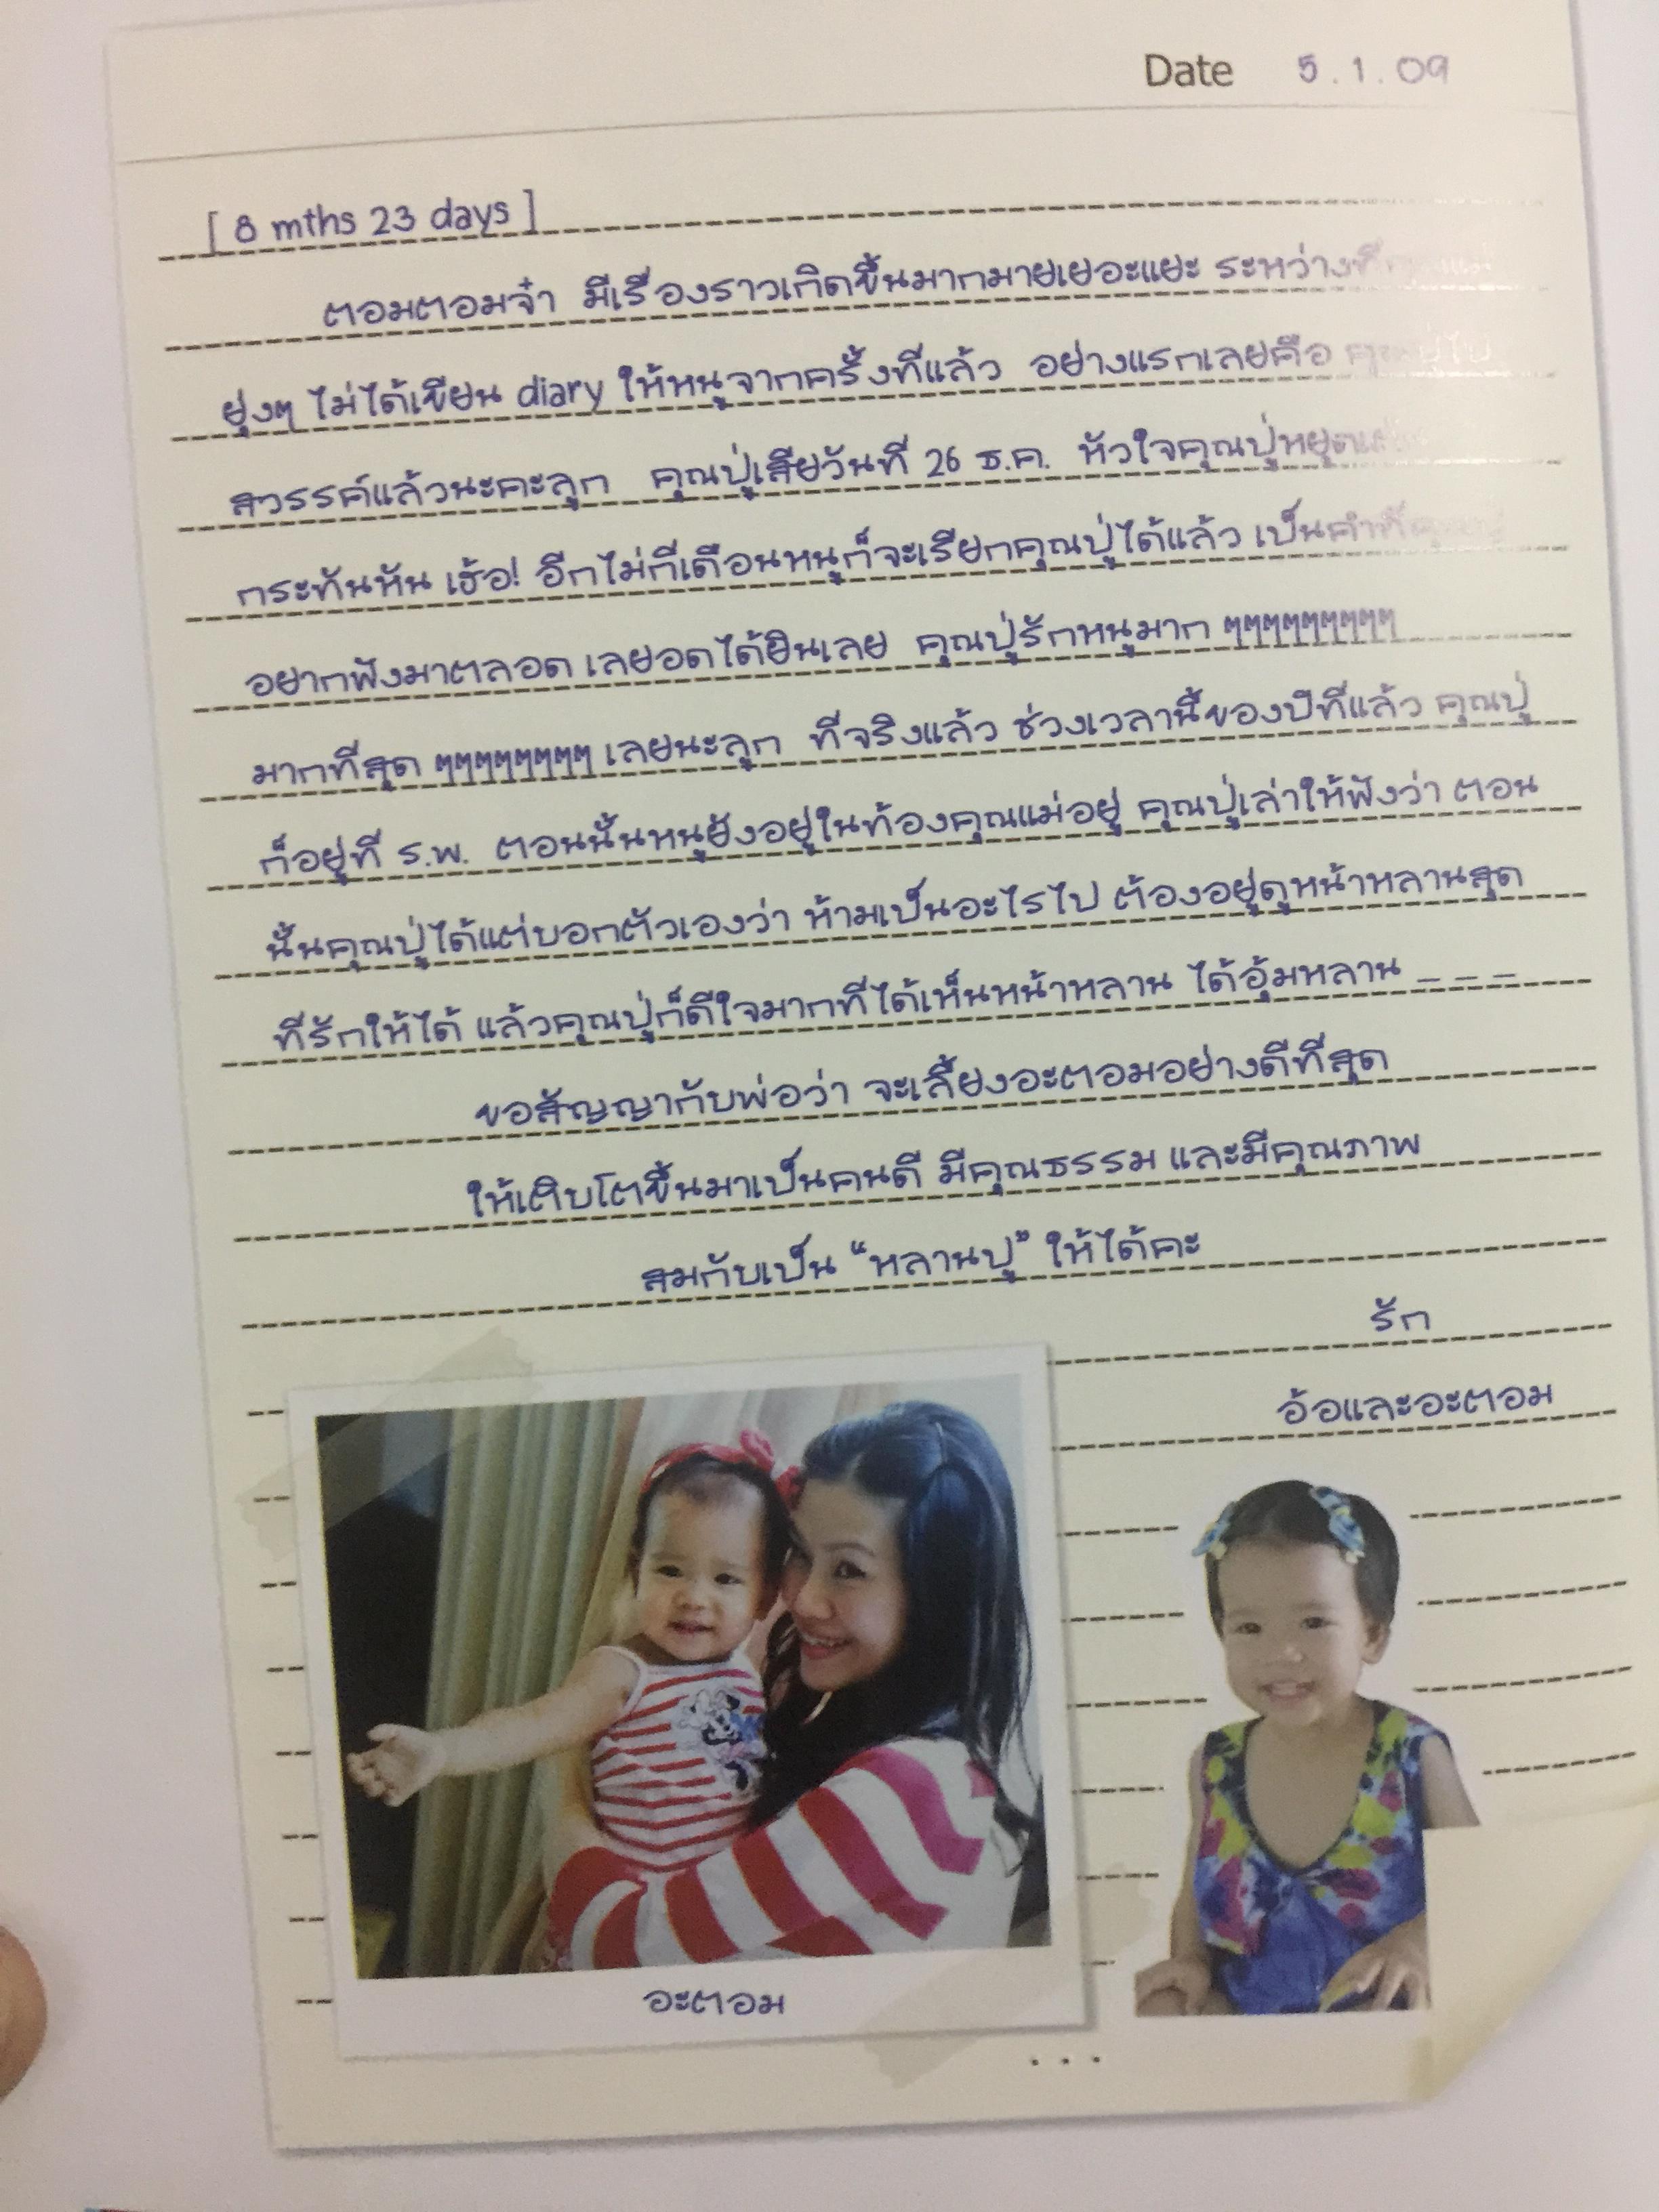 Date 5.1.09
[ 8 mths 23 days ]
ตอมตอมจ๋า มีเรื่องราวเกิดขึ้นมากมายเยอะแยะ ระหว่างที่
ยุ่งๆ ไม่ได้เขียน diary ให้หนูจากครั้งที่แล้ว อย่างแรกเลยคือ
สวรรค์แล้วนะคะลูก คุณปู่เสียวันที่ 26 ธ.ค. หัวใจคุณปู่หยุด
กระทันหัน เฮ้อ! อีกไม่กี่เดือนหนูก็จะเรียกคุณปู่ได้แล้ว เป็นคำที่
อยากฟังมาตลอด เลยอดได้ยินเลย คุณปู่รักหนูมาก ๆๆๆๆๆๆๆๆๆ
มากที่สุด ๆๆๆๆๆๆๆๆ เลยนะลูก ที่จริงแล้ว ช่วงเวลานี้ของปีที่แล้ว คุณปู่
ก็อยู่ที่ ร.พ. ตอนนั้นหนูยังอยู่ในท้องคุณแม่อยู่ คุณปู่เล่าให้ฟังว่า ตอน
นั้นคุณปู่ได้แต่บอกตัวเองว่า ห้ามเป็นอะไรไป ต้องอยู่ดูหน้าหลานสุด
ที่รักให้ได้ แล้วคุณปู่ก็ดีใจมากที่ได้เห็นหน้าหลาน ได้อุ้มหลาน _ _ _
ขอสัญญากับพ่อว่า จะเลี้ยงอะตอมอย่างดีที่สุด
ให้เติบโตขึ้นมาเป็นคนดี มีคุณธรรม และมีคุณภาพ
สมกับเป็น “หลานปู่” ให้ได้คะ
รัก
อ้อและอะตอม
อะตอม
...